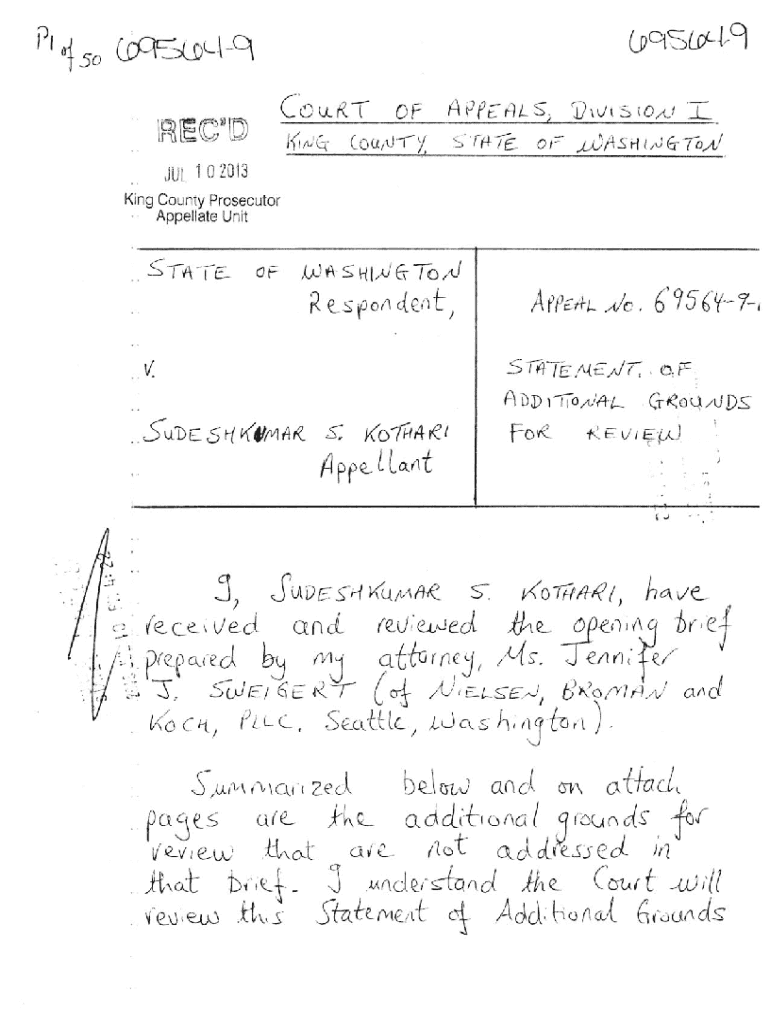 P1 of 50 69564-9
69564-9
COURT OF APPEALS, DIVISION I
KING COUNTY, STATE OF WASHINGTON
REC'D
JUL 10 2013
King County Prosecutor
Appellate Unit
STATE OF WASHINGTON
Respondent,
V.
SUDESHKUMAR S. KOTHARI
Appellant
APPEAL No. 69564-9-
STATEMENT OF
ADDITIONAL GROUNDS
FOR REVIEW
I, SUDESHKUMAR S. KOTHARI, have
received and reviewed the opening brief
prepared by my attorney, Ms. Jennifer
J. SWEIGERT (of NIELSEN, BROMAN and
KOCH, PLLC, Seattle, Washington).
Summarized below and on attach
pages are the additional grounds for
review that are not addressed in
that brief. I understand the Court will
review this Statement of Additional Grounds